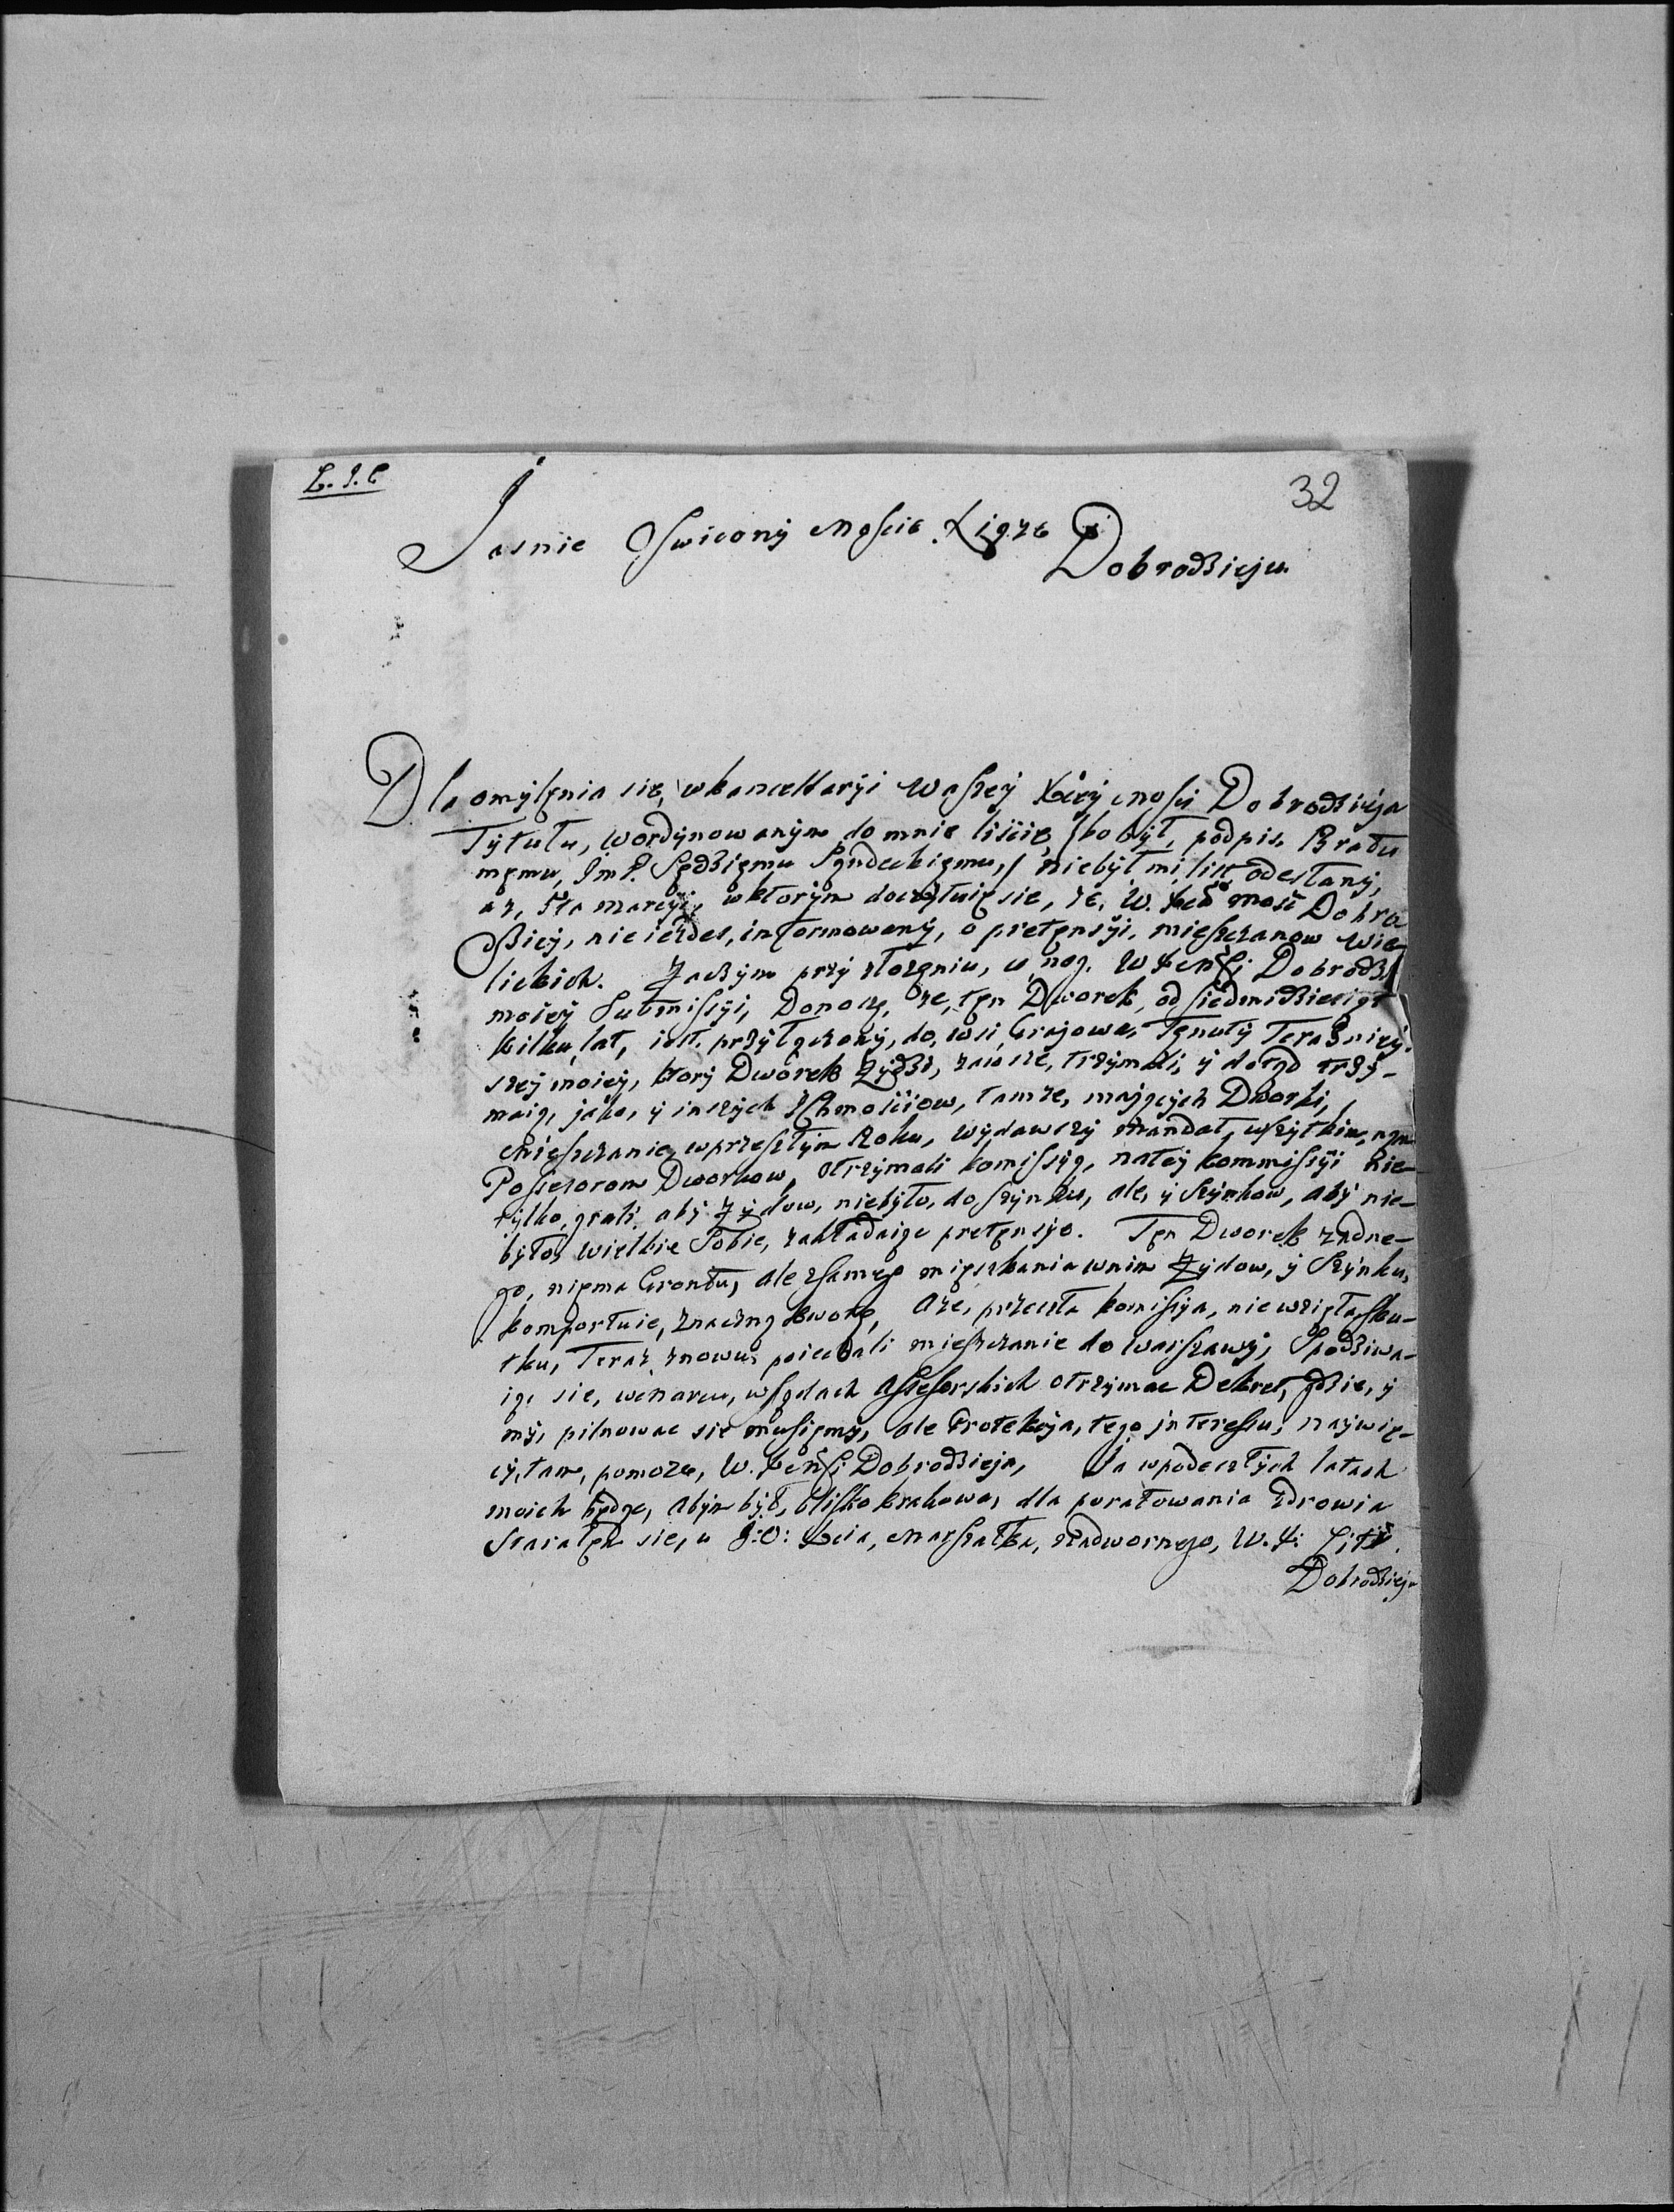 L. I. C
32
Jasnie Oswicony Moscie Xiąze
Dobrodzieju
Dla omylęnia się, wkancellaryi Waszey Xiązy mosci Dobrodzieja
Tytułu, wordynowanym do mnie liscie, /bo był, podpis, Bratu
męmu, ImP. Sędzięmu Sędeckięmu,/ niebył mi list, odesłany,
az, 5ta marcyi, wktorym doczytuię się, ze, W. Xcia mosc Dobro
dziey, nie iezdes, informowany, o pretęnsyi, mieszczanow Wie
lickich. Zaczym przy złozęniu, u nog. W Xcmsci Dobrodz
moiey Submissyi, Donoszę, ze, tęn Dworek, od siedmidziesiąt
kilku, lat, iest, przyłączony, do, wsi, Grajowa, Tęnuty Teraznięy
szey moiey, ktory Dworek Zydzi, zawsze, trzymali, y dotąd trzy-
maią, jako, y inszych IchMosciow, tamze, mających Dworki,
Mieszczanie, wprzeszłym Roku, wydawszy Mandat, wszytkim, nąm
Possesorom Dworkow, otrzymali komissyą, natey kommissyi nie-
tylko, grali, aby Zydow, niebyło, do szynku, ale, y szynkow, aby nie-
było, wielkie Sobie, zakładaiąc pretęnsye. Tęn Dworek zadne-
go, nięma Grontu, ale zsamego mięszkania wnim Zydow, y Szynku,
komportuie, znaczną kwotę, Aze, przeszła komissya, niewzięła sku-
tku, Teraz znowu, poiechali mieszczanie do Warszawy, Spodziwa-
ią, się, wmarcu, wsądach Assesorskich otrzymac Dekret, gdzie, y
my, pilnowac się musięmy, ale Protekcya, tego jnteressu, naywię-
cy, tam, pomoze, W. Xcmsci Dobrodzieja, Ja wpodeszłych latach
moich będąc, abym był, blisko krakowa, dla poratowania Zdrowia
starałęm się, u J:O: Xcia, Marszałka, Nadwornego, W. X: Litt.
Dobrodzieja